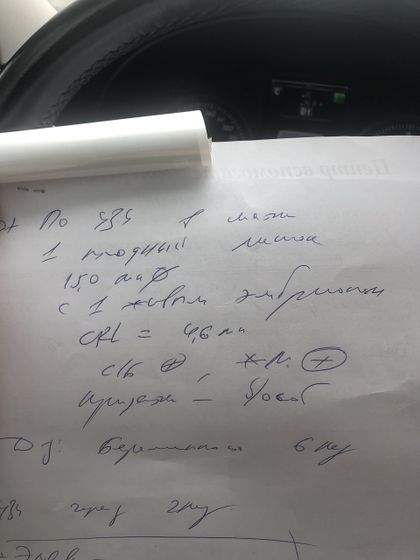 Центр вспомога
По УЗИ в матке
1 плодный мешок
15,0 мм
с 1 живым эмбрионом
CRL = 4,6 мм
с/б ⊕, ж.м. ⊕
придатки – б/особ
Ds: Беременность 6 нед
УЗИ через 2 нед